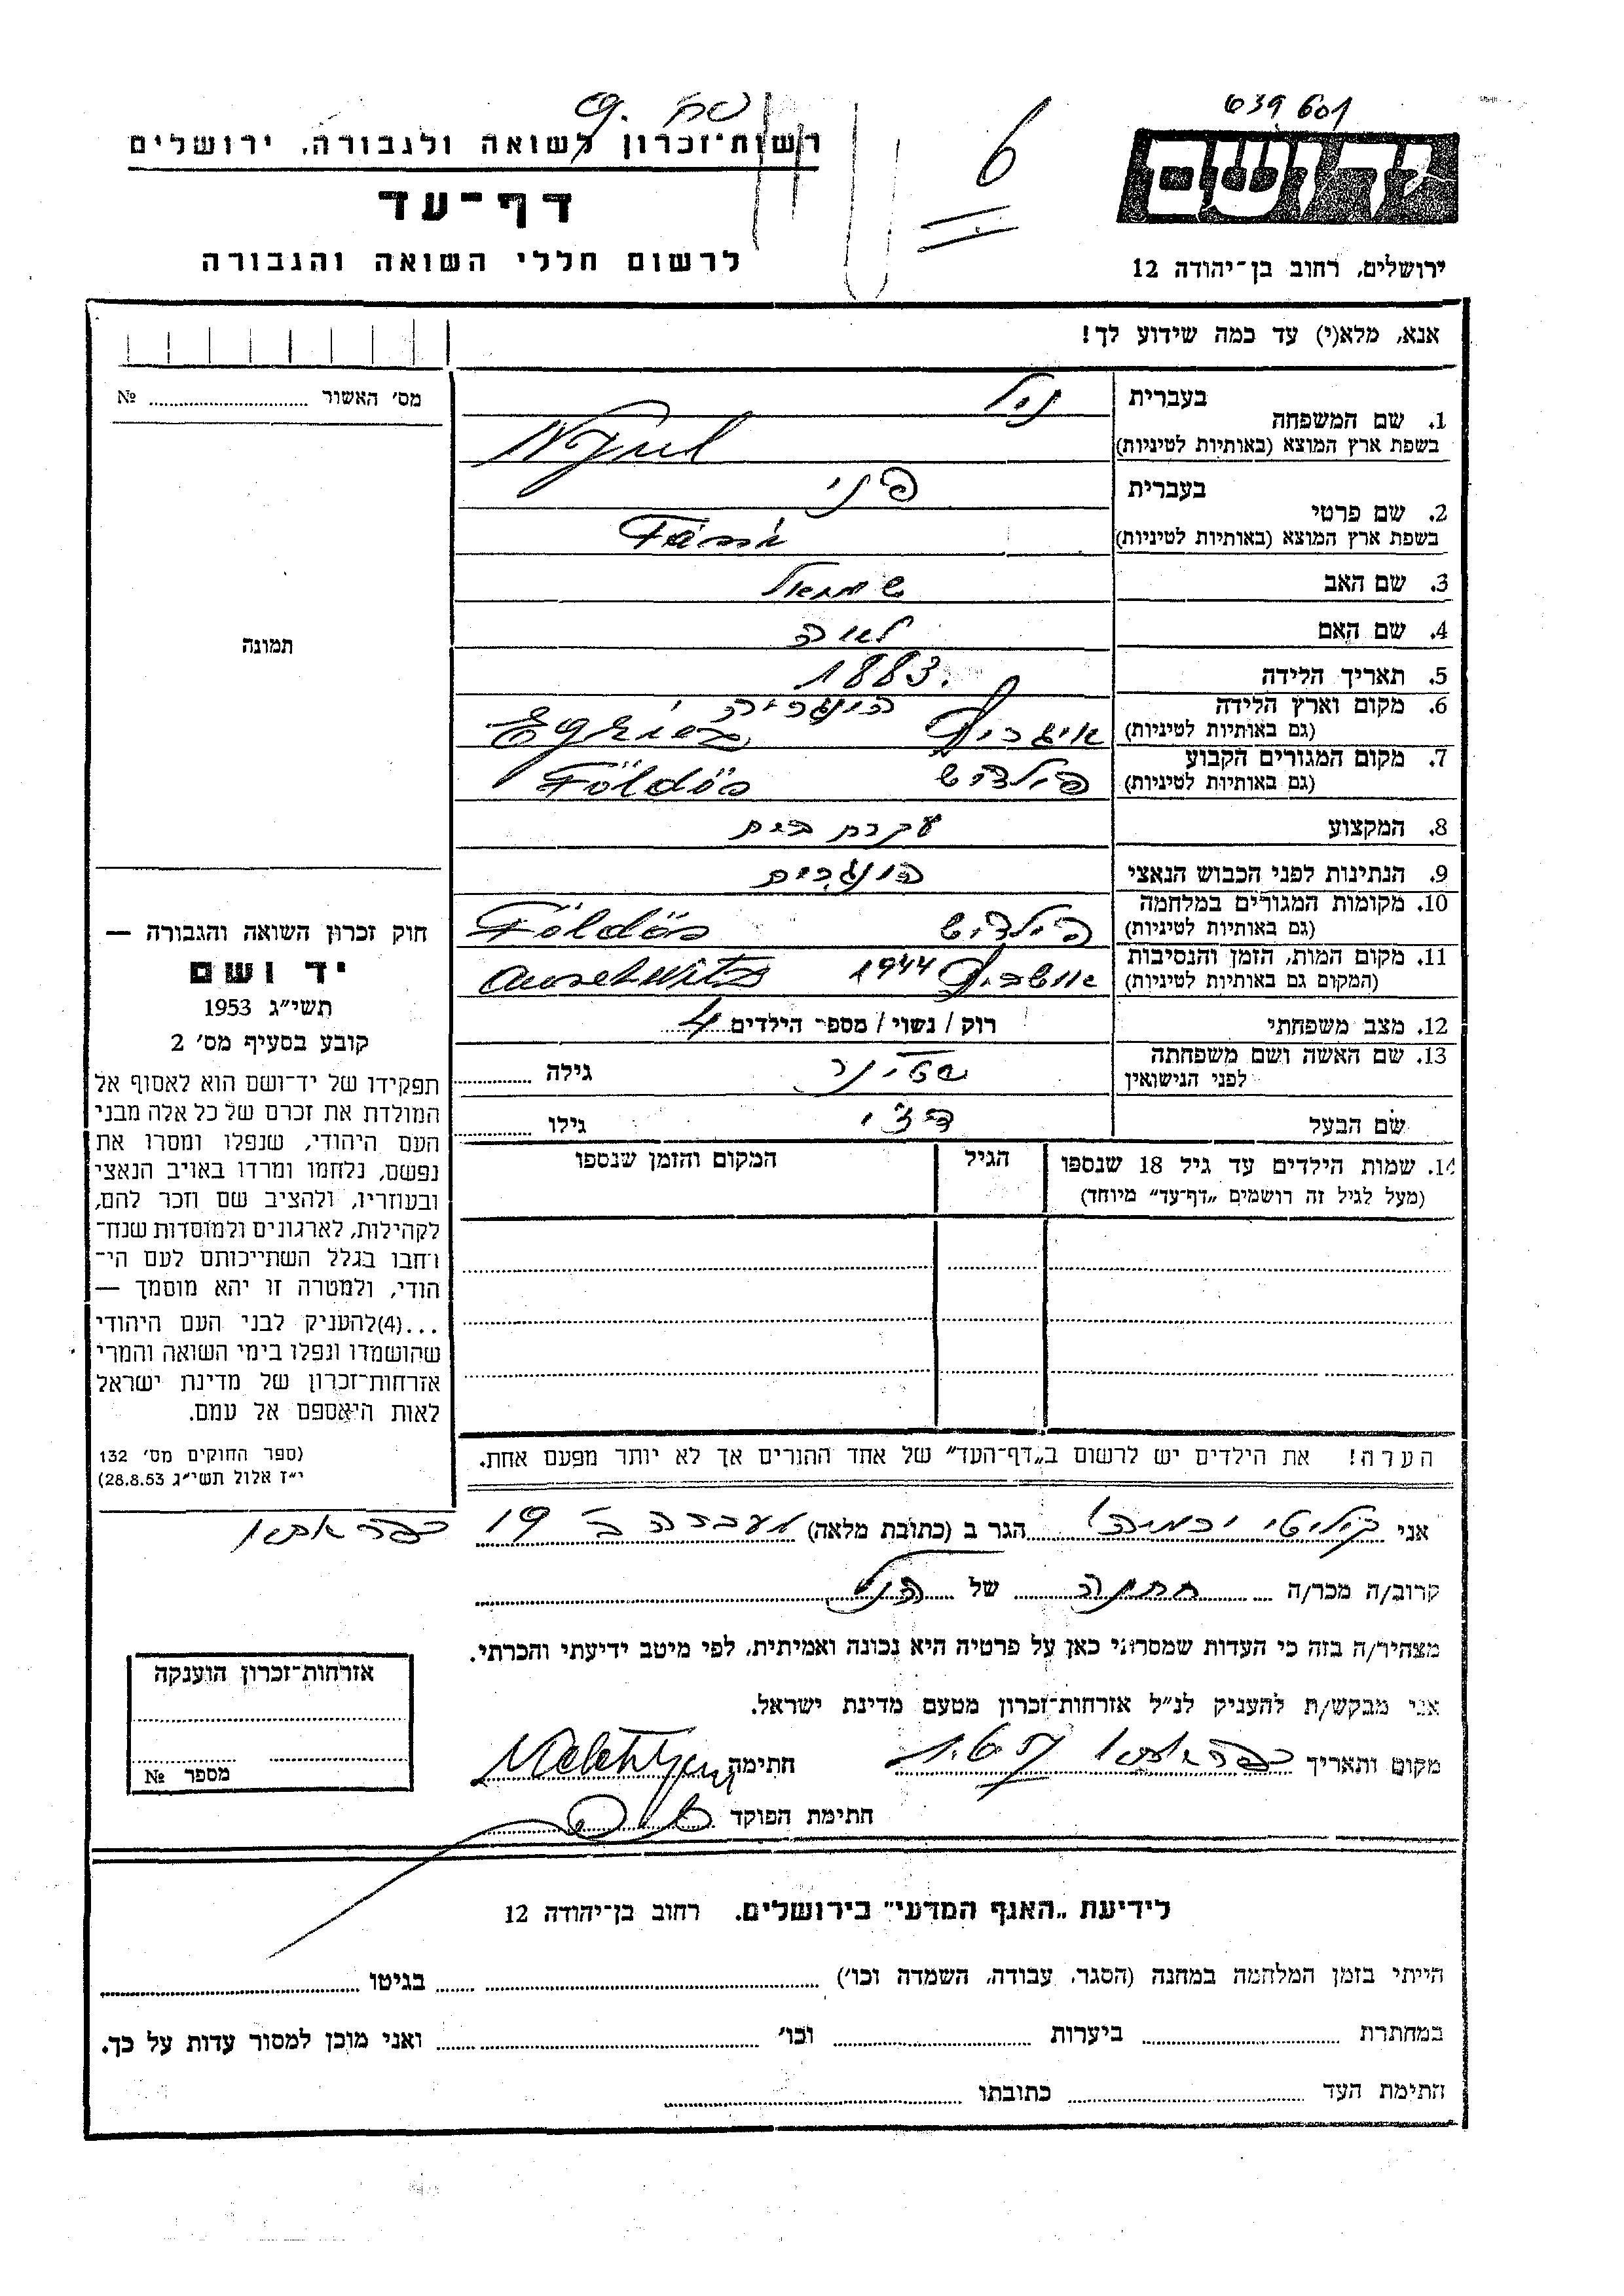 639601
6
יד ושם
ירושלים, רחוב בן־יהודה 12
רשות־זכרון לשואה ולגבורה, ירושלים
דף־עד
לרשום חללי השואה והגבורה
אנא, מלא(י) עד כמה שידוע לך!
מס' האשור № 
תמונה
1. שם המשפחה
בעברית
בשפת ארץ המוצא (באותיות לטיניות)
2. שם פרטי
בעברית פני
בשפת ארץ המוצא (באותיות לטיניות) Fáni
3. שם האב שמואל
4. שם האם לאה
5. תאריך הלידה 1883.
6. מקום וארץ הלידה הונגריה
(גם באותיות לטיניות)
7. מקום המגורים הקבוע
(גם באותיות לטיניות) פילדש Földös
8. המקצוע עקרת בית
9. הנתינות לפני הכבוש הנאצי הונגרית
10. מקומות המגורים במלחמה
(גם באותיות לטיניות) פילדש Földös
11. מקום המות, הזמן והנסיבות
(המקום גם באותיות לטיניות) אושביץ 1944 Auschwitz
12. מצב משפחתי רוק / נשוי / מספר הילדים 4
13. שם האשה ושם משפחתה
לפני הנישואין שטינר גילה
שם הבעל גילו
14. שמות הילדים עד גיל 18 שנספו הגיל המקום והזמן שנספו
(מעל לגיל זה רושמים „דף־עד” מיוחד)
הערה! את הילדים יש לרשום ב„דף־העד” של אחד ההורים אך לא יותר מפעם אחת.
חוק זכרון השואה והגבורה —
יד ושם
תשי״ג 1953
קובע בסעיף מס' 2
תפקידו של יד־ושם הוא לאסוף אל
המולדת את זכרם של כל אלה מבני
העם היהודי, שנפלו ומסרו את
נפשם, נלחמו ומרדו באויב הנאצי
ובעוזריו, ולהציב שם וזכר להם,
לקהילות, לארגונים ולמוסדות שנח־
רחבו בגלל השתייכותם לעם הי־
הודי, ולמטרה זו יהא מוסמך —
...(4)להעניק לבני העם היהודי
שהושמדו ונפלו בימי השואה והמרי
אזרחות־זכרון של מדינת ישראל
לאות היאספם אל עמם.
(ספר החוקים מס' 132
י״ז אלול תשי״ג 28.8.53)
אני הגר ב (כתובת מלאה) מעברה ב' 19 כפר אתא
קרוב/ה מכר/ה של הנ״ל
מצהיר/ה בזה כי העדות שמסרתי כאן על פרטיה היא נכונה ואמיתית, לפי מיטב ידיעתי והכרתי.
אני מבקש/ת להעניק לנ״ל אזרחות־זכרון מטעם מדינת ישראל.
מקום ותאריך כפר אתא חתימה
חתימת הפוקד
אזרחות־זכרון הוענקה
מספר №
לידיעת „האגף המדעי” בירושלים. רחוב בן־יהודה 12
הייתי בזמן המלחמה במחנה (הסגר, עבודה, השמדה וכו') בגיטו
במחתרת ביערות וכו' ואני מוכן למסור עדות על כך.
חתימת העד כתובתו